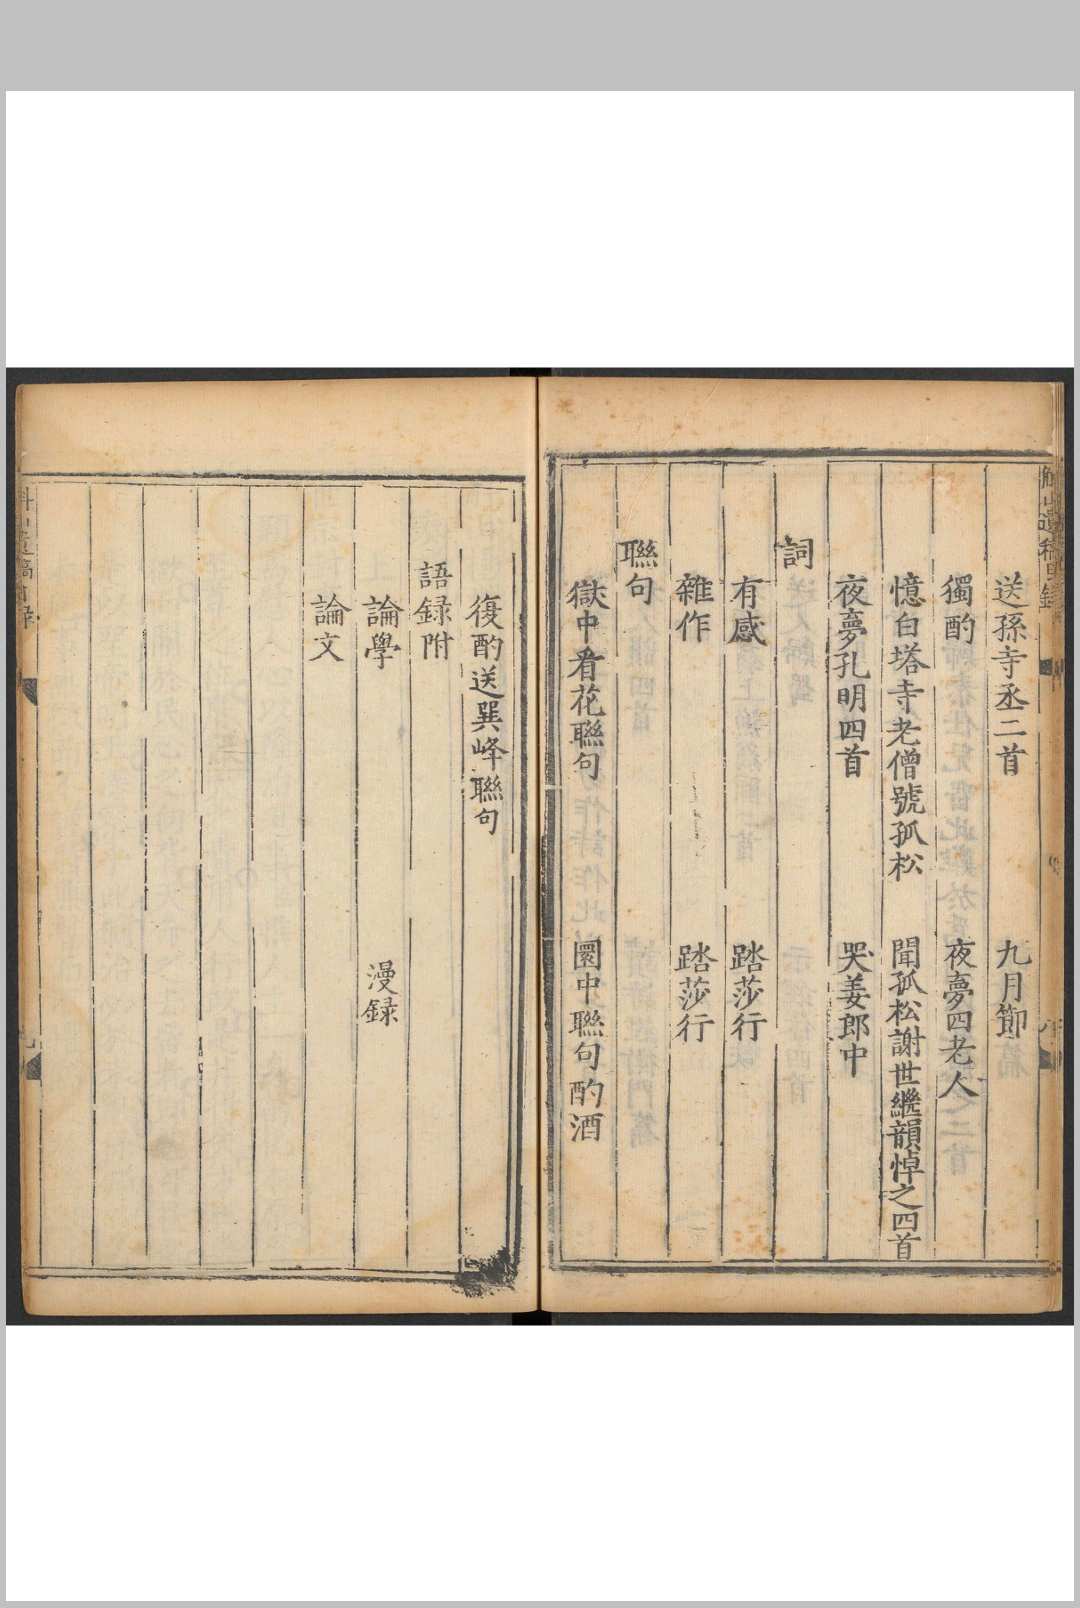 送孫寺丞二首　九月節
獨酌　夜夢四老人
憶白塔寺老僧號孤松　聞孤松謝世繼韻悼之四首
夜夢孔明四首　哭姜郎中
詞
有感　踏莎行
雜作　踏莎行
聯句
獄中看花聯句　圜中聯句酌酒
復酌送巽峰聯句
語録附
論學　漫録
論文